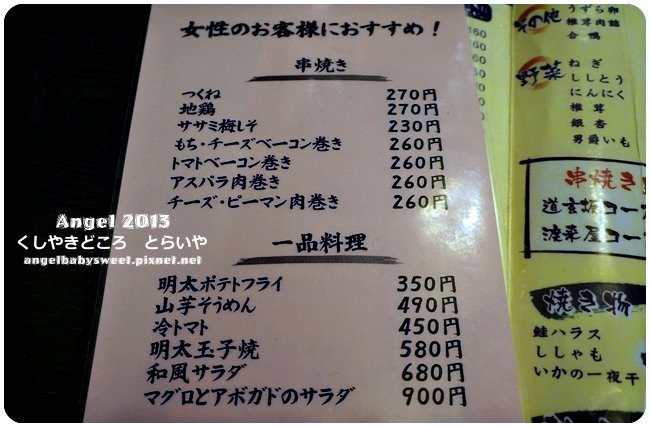 女性のお客様におすすめ！
串焼き
つくね 270円
地鶏 270円
ササミ梅しそ 230円
もち・チーズベーコン巻き 260円
トマトベーコン巻き 260円
アスパラ肉巻き 260円
チーズ・ピーマン肉巻き 260円
一品料理
明太ポテトフライ 350円
山芋そうめん 490円
冷トマト 450円
明太玉子焼 580円
和風サラダ 680円
マグロとアボガドのサラダ 900円
Angel 2013
くしやきどころ とらいや
angelbabysweet.pixnet.net
その他
うずら卵
椎茸肉詰
合鴨
野菜
ねぎ
ししとう
にんにく
椎茸
銀杏
男爵いも
串焼き
道玄坂コー
渡来屋コー
焼き物
鮭ハラス
ししゃも
いかの一夜干